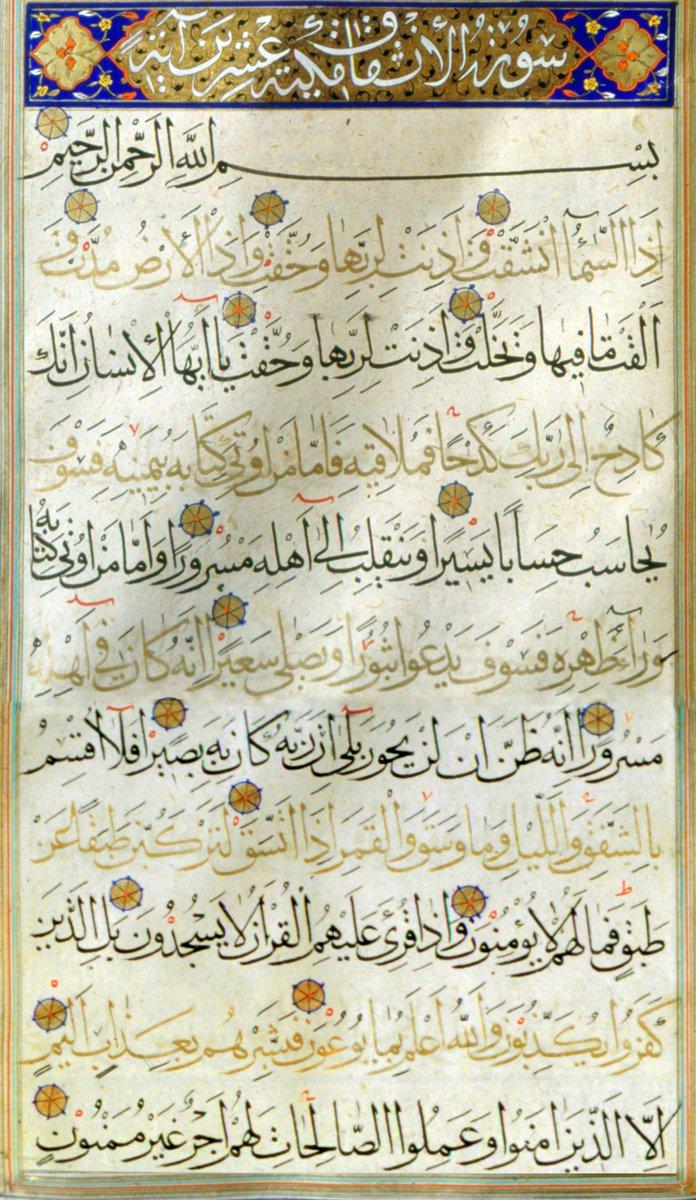 سورة الانشقاق مكية عشرين آية
بسم الله الرحمن الرحيم
اذا السماء انشقت واذنت لربها وحقت واذا الارض مدت و
القت ما فيها وتخلت واذنت لربها وحقت يا ايها الانسان انك
كادح الى ربك كدحا فملاقيه فاما من اوتي كتابه بيمينه فسوف
يحاسب حسابا يسيرا وينقلب الى اهله مسرورا واما من اوتي كتابه
وراء ظهره فسوف يدعوا ثبورا ويصلى سعيرا انه كان في اهله
مسرورا انه ظن ان لن يحور بلى ان ربه كان به بصيرا فلا اقسم
بالشفق والليل وما وسق والقمر اذا اتسق لتركبن طبقا عن
طبق فما لهم لا يؤمنون واذا قرئ عليهم القرآن لا يسجدون بل الذين
كفروا يكذبون والله اعلم بما يوعون فبشرهم بعذاب اليم
الا الذين امنوا وعملوا الصالحات لهم اجر غير ممنون